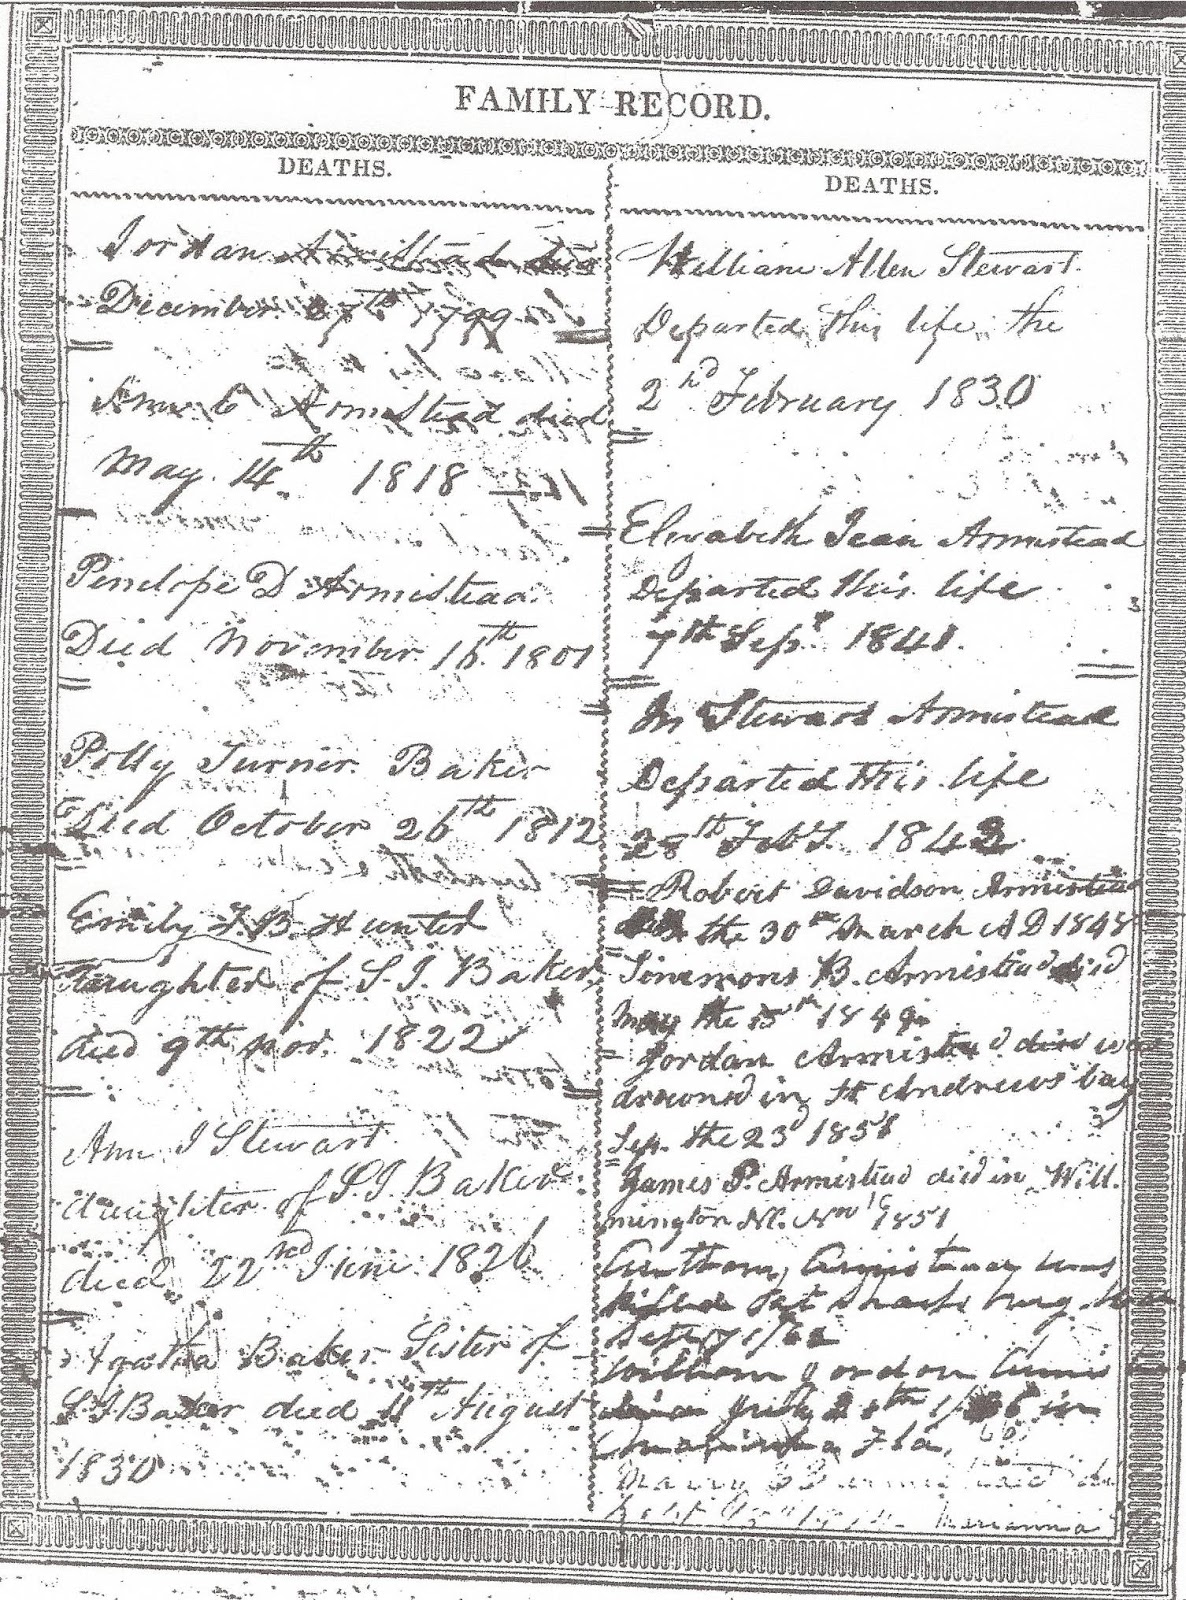 FAMILY RECORD.
DEATHS.
Jordan Armistead died
December 27th 1799
Armistead died
May 14th 1818
Penelope D Armistead
Died November 16th 1801
Polly Turner Baker
Died October 26th 1812
Emily J. B. Hunter
Daughter of S. J. Baker
died 9th Nov. 1822
Ann J Stewart
daughter of S. J Baker
died 22nd June 1826
Agatha Baker Sister of
S J Baker died 11th August
1830
DEATHS.
William Allen Stewart
Departed this life the
2nd February 1830
Elizabeth Jean Armistead
Departed this life
7th Sept 1841
Stewart Armistead
Departed this life
28th Feby 1843
Robert Davidson Armistead
died the 30th March AD 1848
Simmons B. Armistead died
May the 15th 1849
Jordan Armistead died was
drowned in St Andrews bay
Sep. the 23d 1851
James P. Armistead died in Will
mington Nov 1851
Anthony Armistead was
killed at Sharpsburg
Sept
William Jordon Armis
July in
Marianna Fla,
Marianna